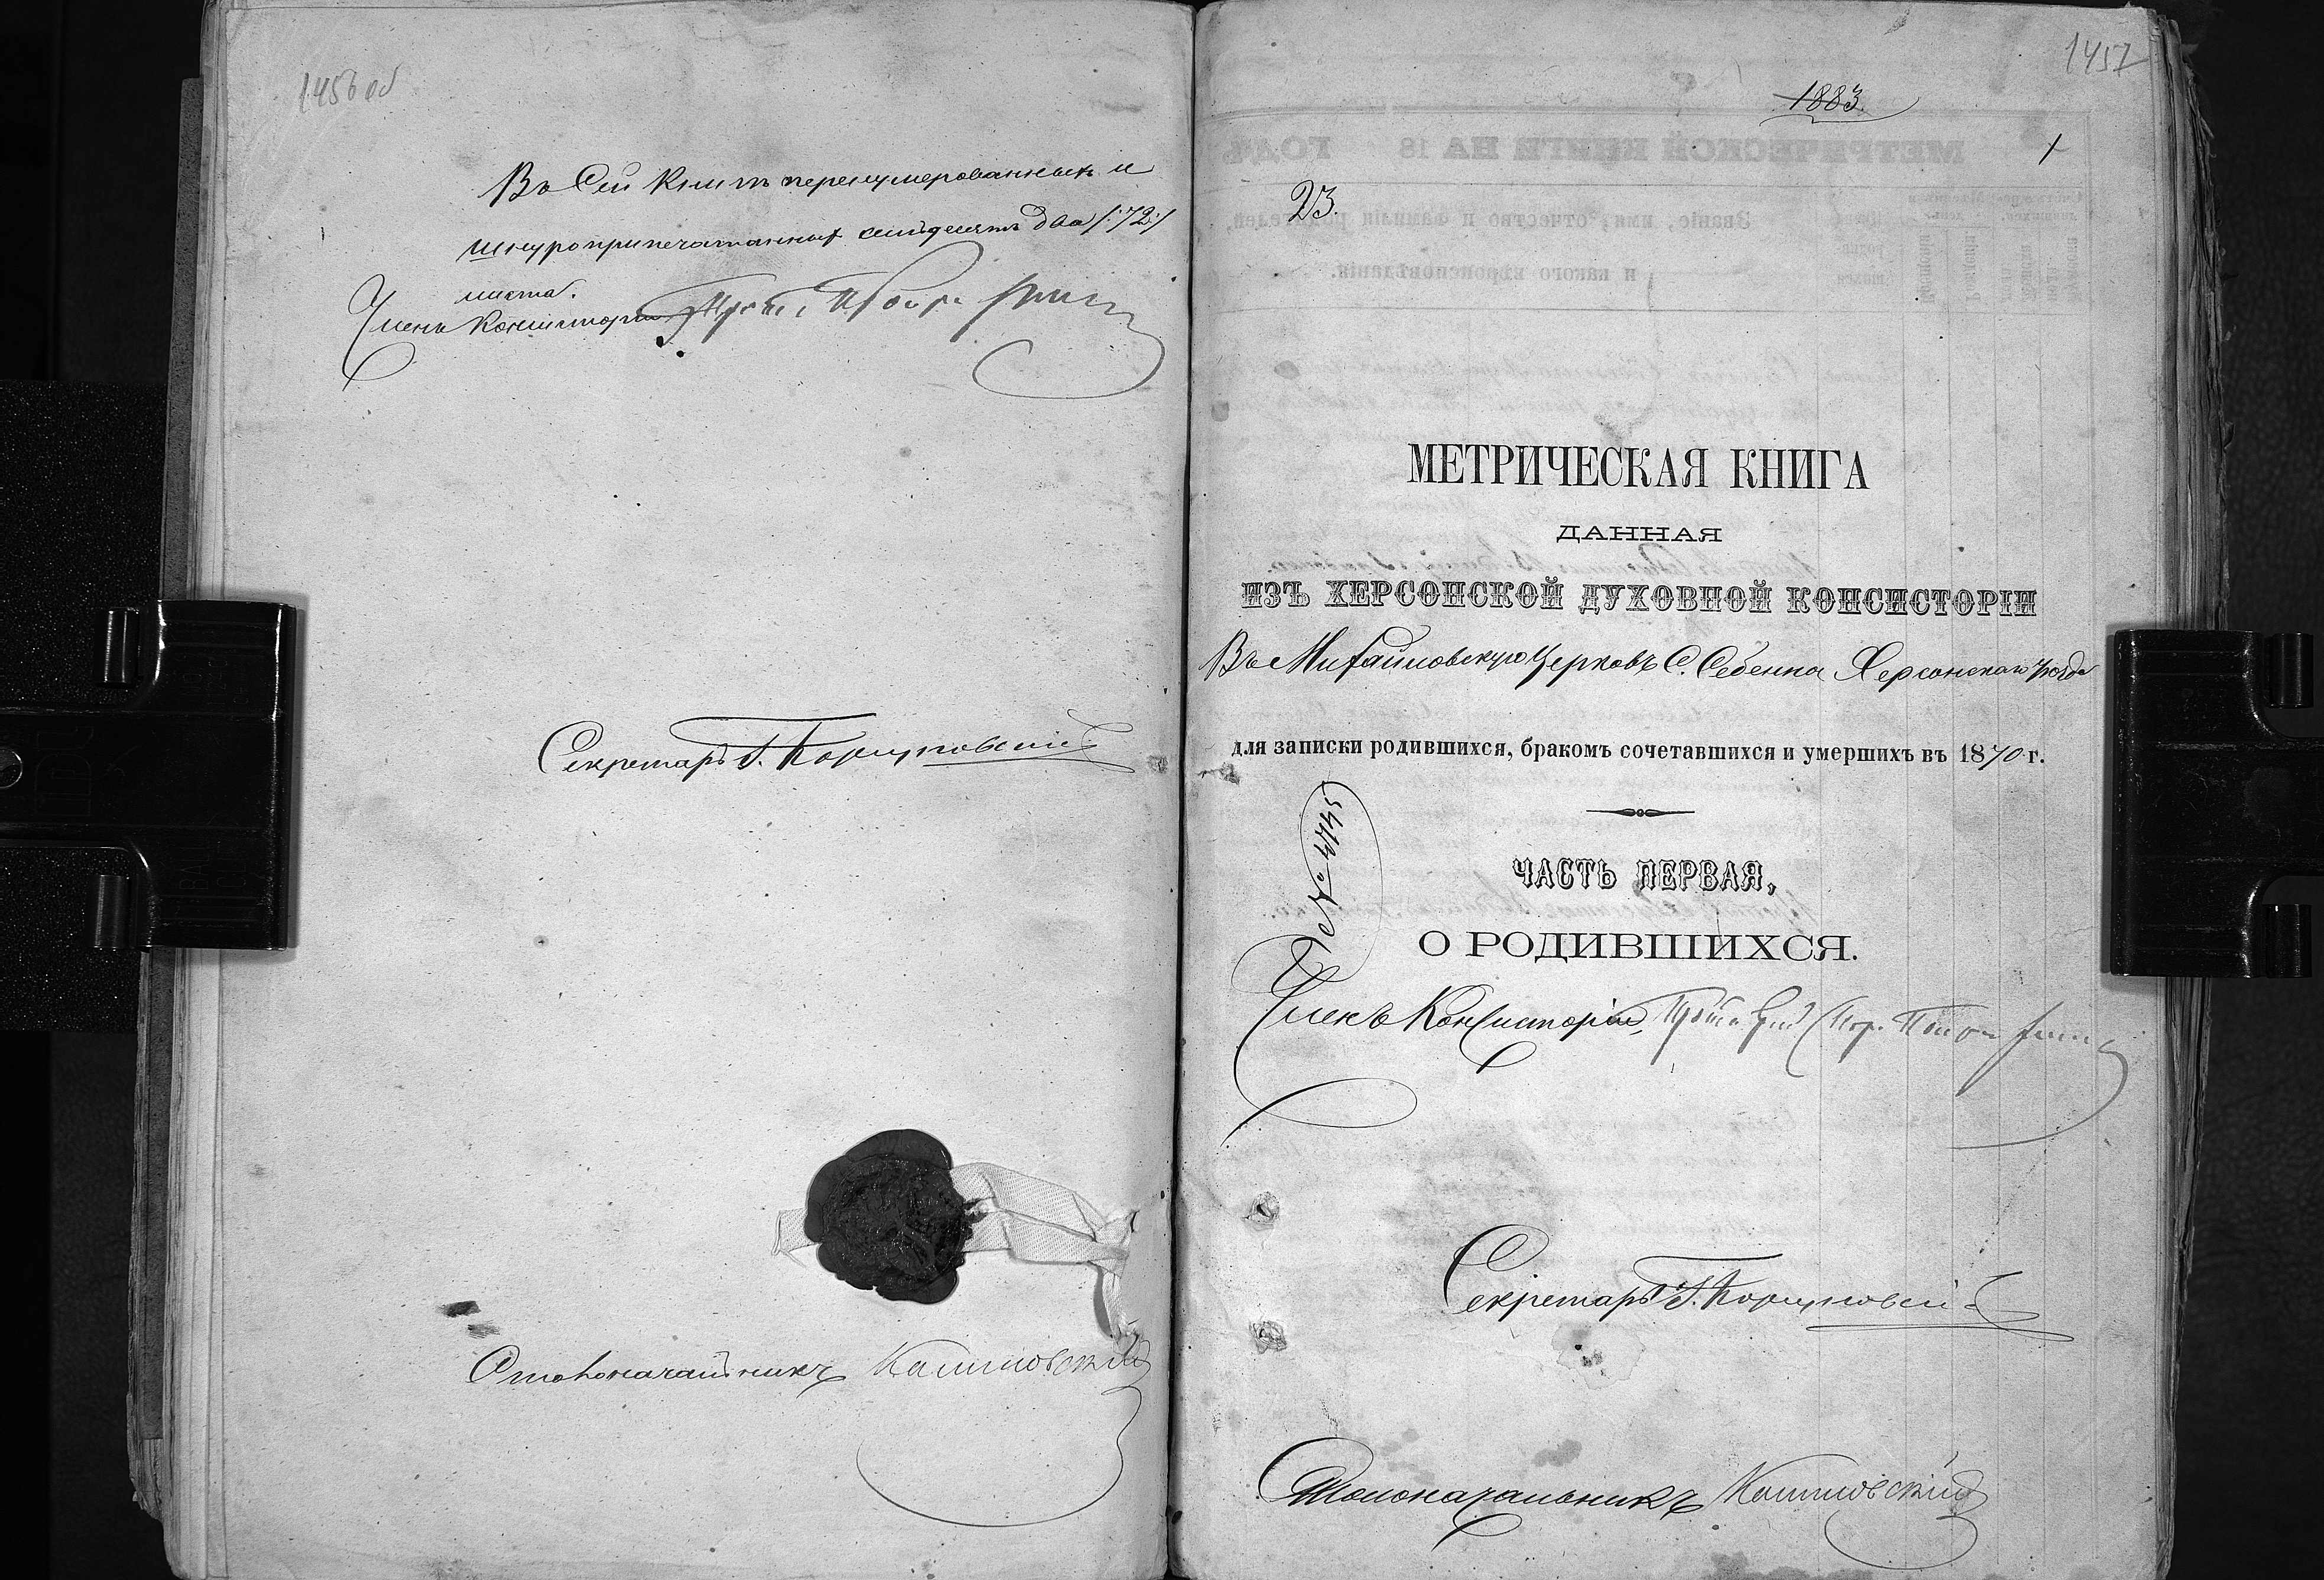 1456 об
Въ Сей Книгѣ перенумерованныхъ и
шнуроприпечатанныхъ семьдесятъ два /:72:/
листа.
Членъ Консисторіи
Секретарь Г.
Столоначальникъ
1457
1883.
1
23.
МЕТРИЧЕСКАЯ КНИГА
ДАННАЯ
ИЗЪ ХЕРСОНСКОЙ ДУХОВНОЙ КОНСИСТОРІИ
Въ Михайловскую Церковь С. Себенна Херсонскаго уѣзда
для записки родившихся, бракомъ сочетавшихся и умершихъ въ 1870 г.
№ 4745
ЧАСТЬ ПЕРВАЯ,
О РОДИВШИХСЯ.
Членъ Консисторіи,
Секретарь Г.
Столоначальникъ